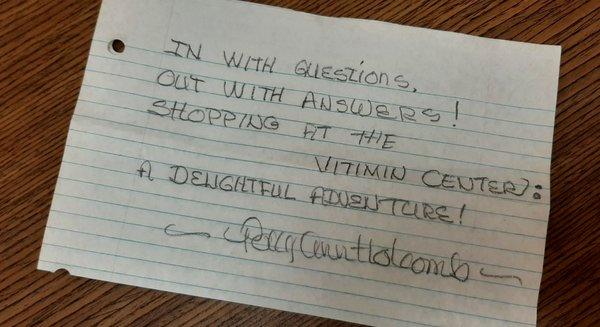 IN WITH QUESTIONS,
OUT WITH ANSWERS!
SHOPPING AT THE
VITIMIN CENTER:
A DELIGHTFUL ADVENTURE!
~ Peggy Ann Holcomb ~